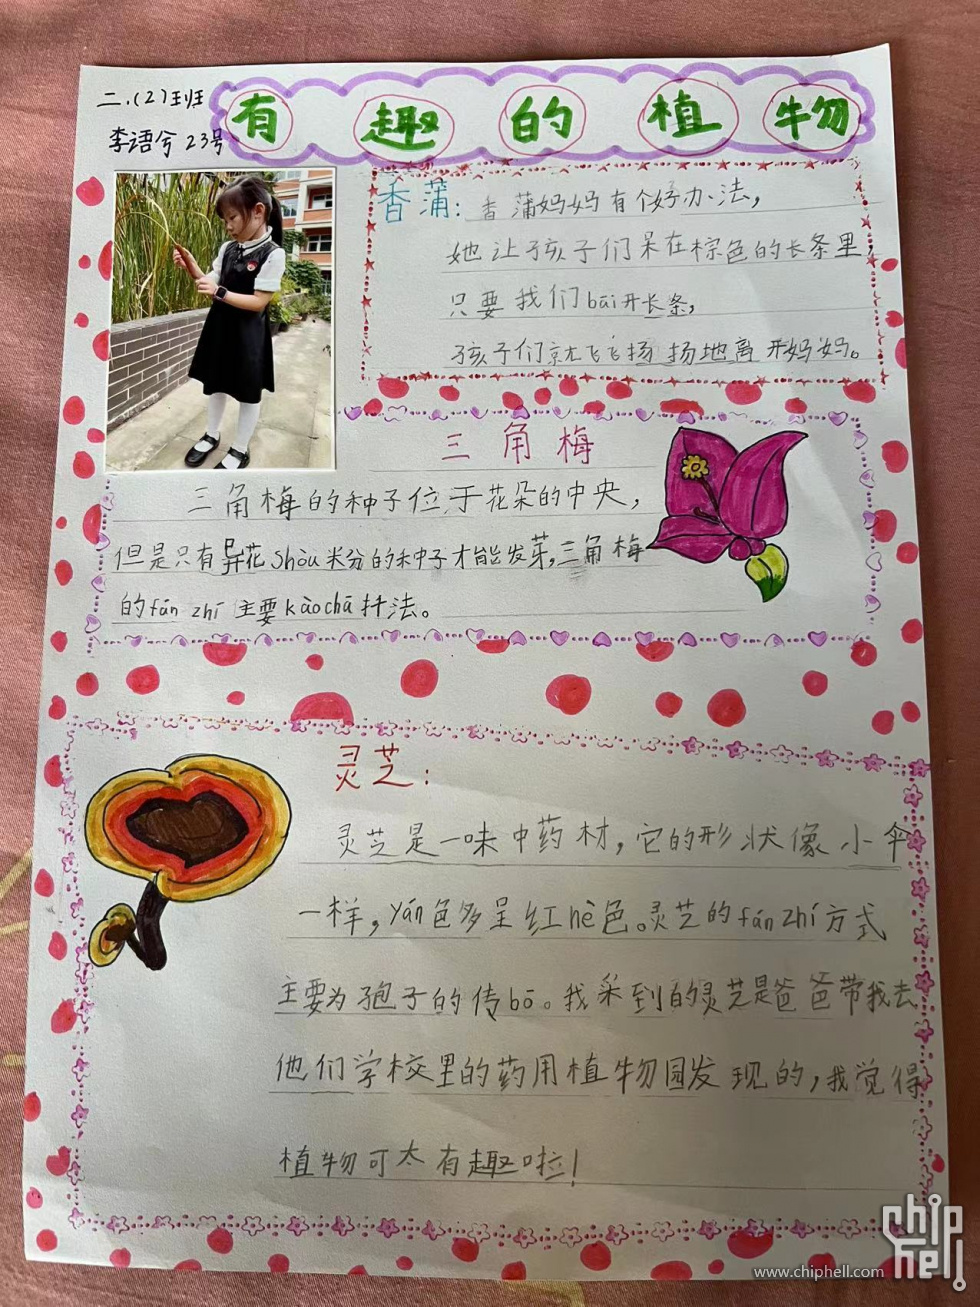 二.(2)班
李语兮 23号
有趣的植物
香蒲:香蒲妈妈有个好办法,
她让孩子们呆在棕色的长条里,
只要我们bāi开长条,
孩子们就飞飞扬扬地离开妈妈。
三角梅
三角梅的种子位于花朵的中央,
但是只有异花shòu米分的种子才能发芽,三角梅
的fán zhí主要kàochā扦法。
灵芝:
灵芝是一味中药材,它的形状像小伞
一样,yán色多呈红hè色。灵芝的fánzhí方式
主要为孢子的传bō。我采到的灵芝是爸爸带我去
他们学校里的药用植物园发现的,我觉得
植物可太有趣啦!
www.chiphell.com
chip
hell